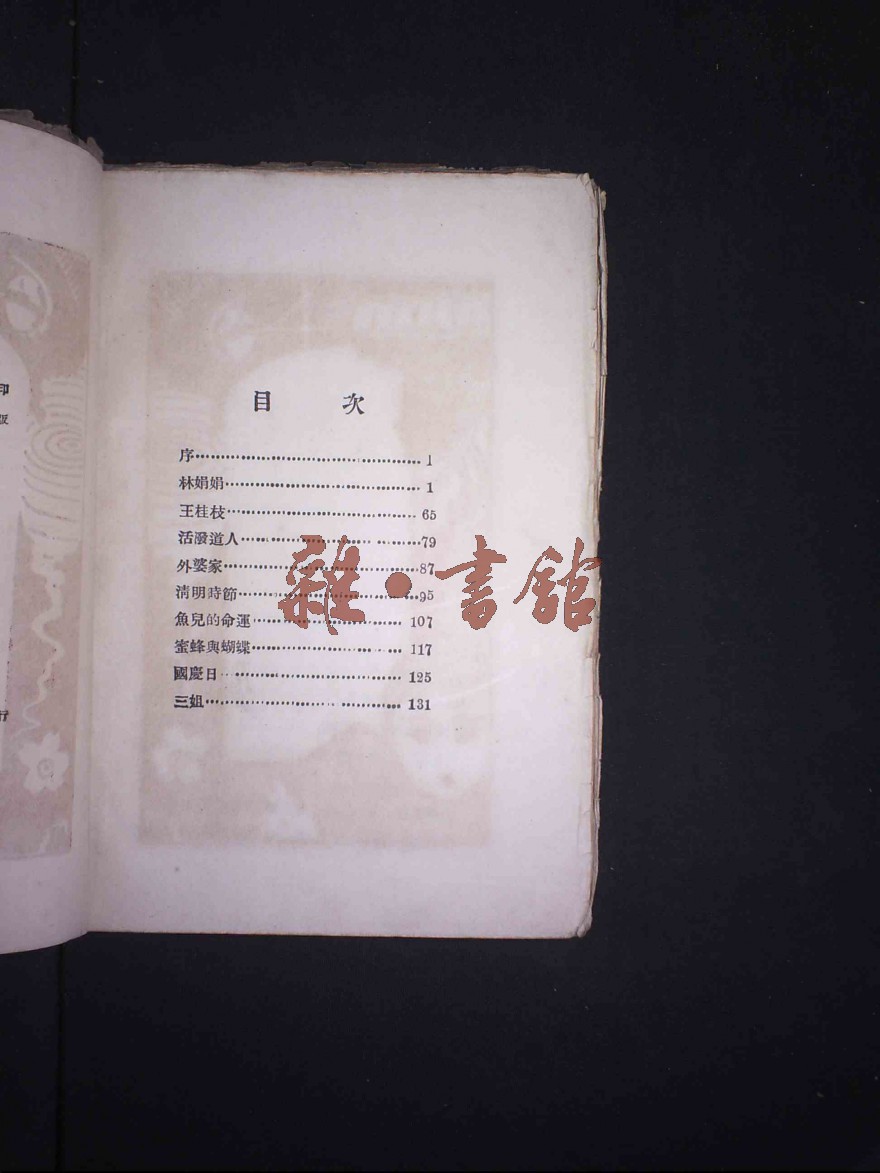 印
版
行
目 次
序 1
林娟娟 1
王桂枝 65
活潑道人 79
外婆家 87
清明時節 95
魚兒的命運 107
蜜蜂與蝴蝶 117
國慶日 125
三姐 131
雜·書館